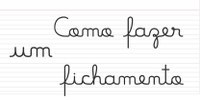 Como fazer
um
fichamento